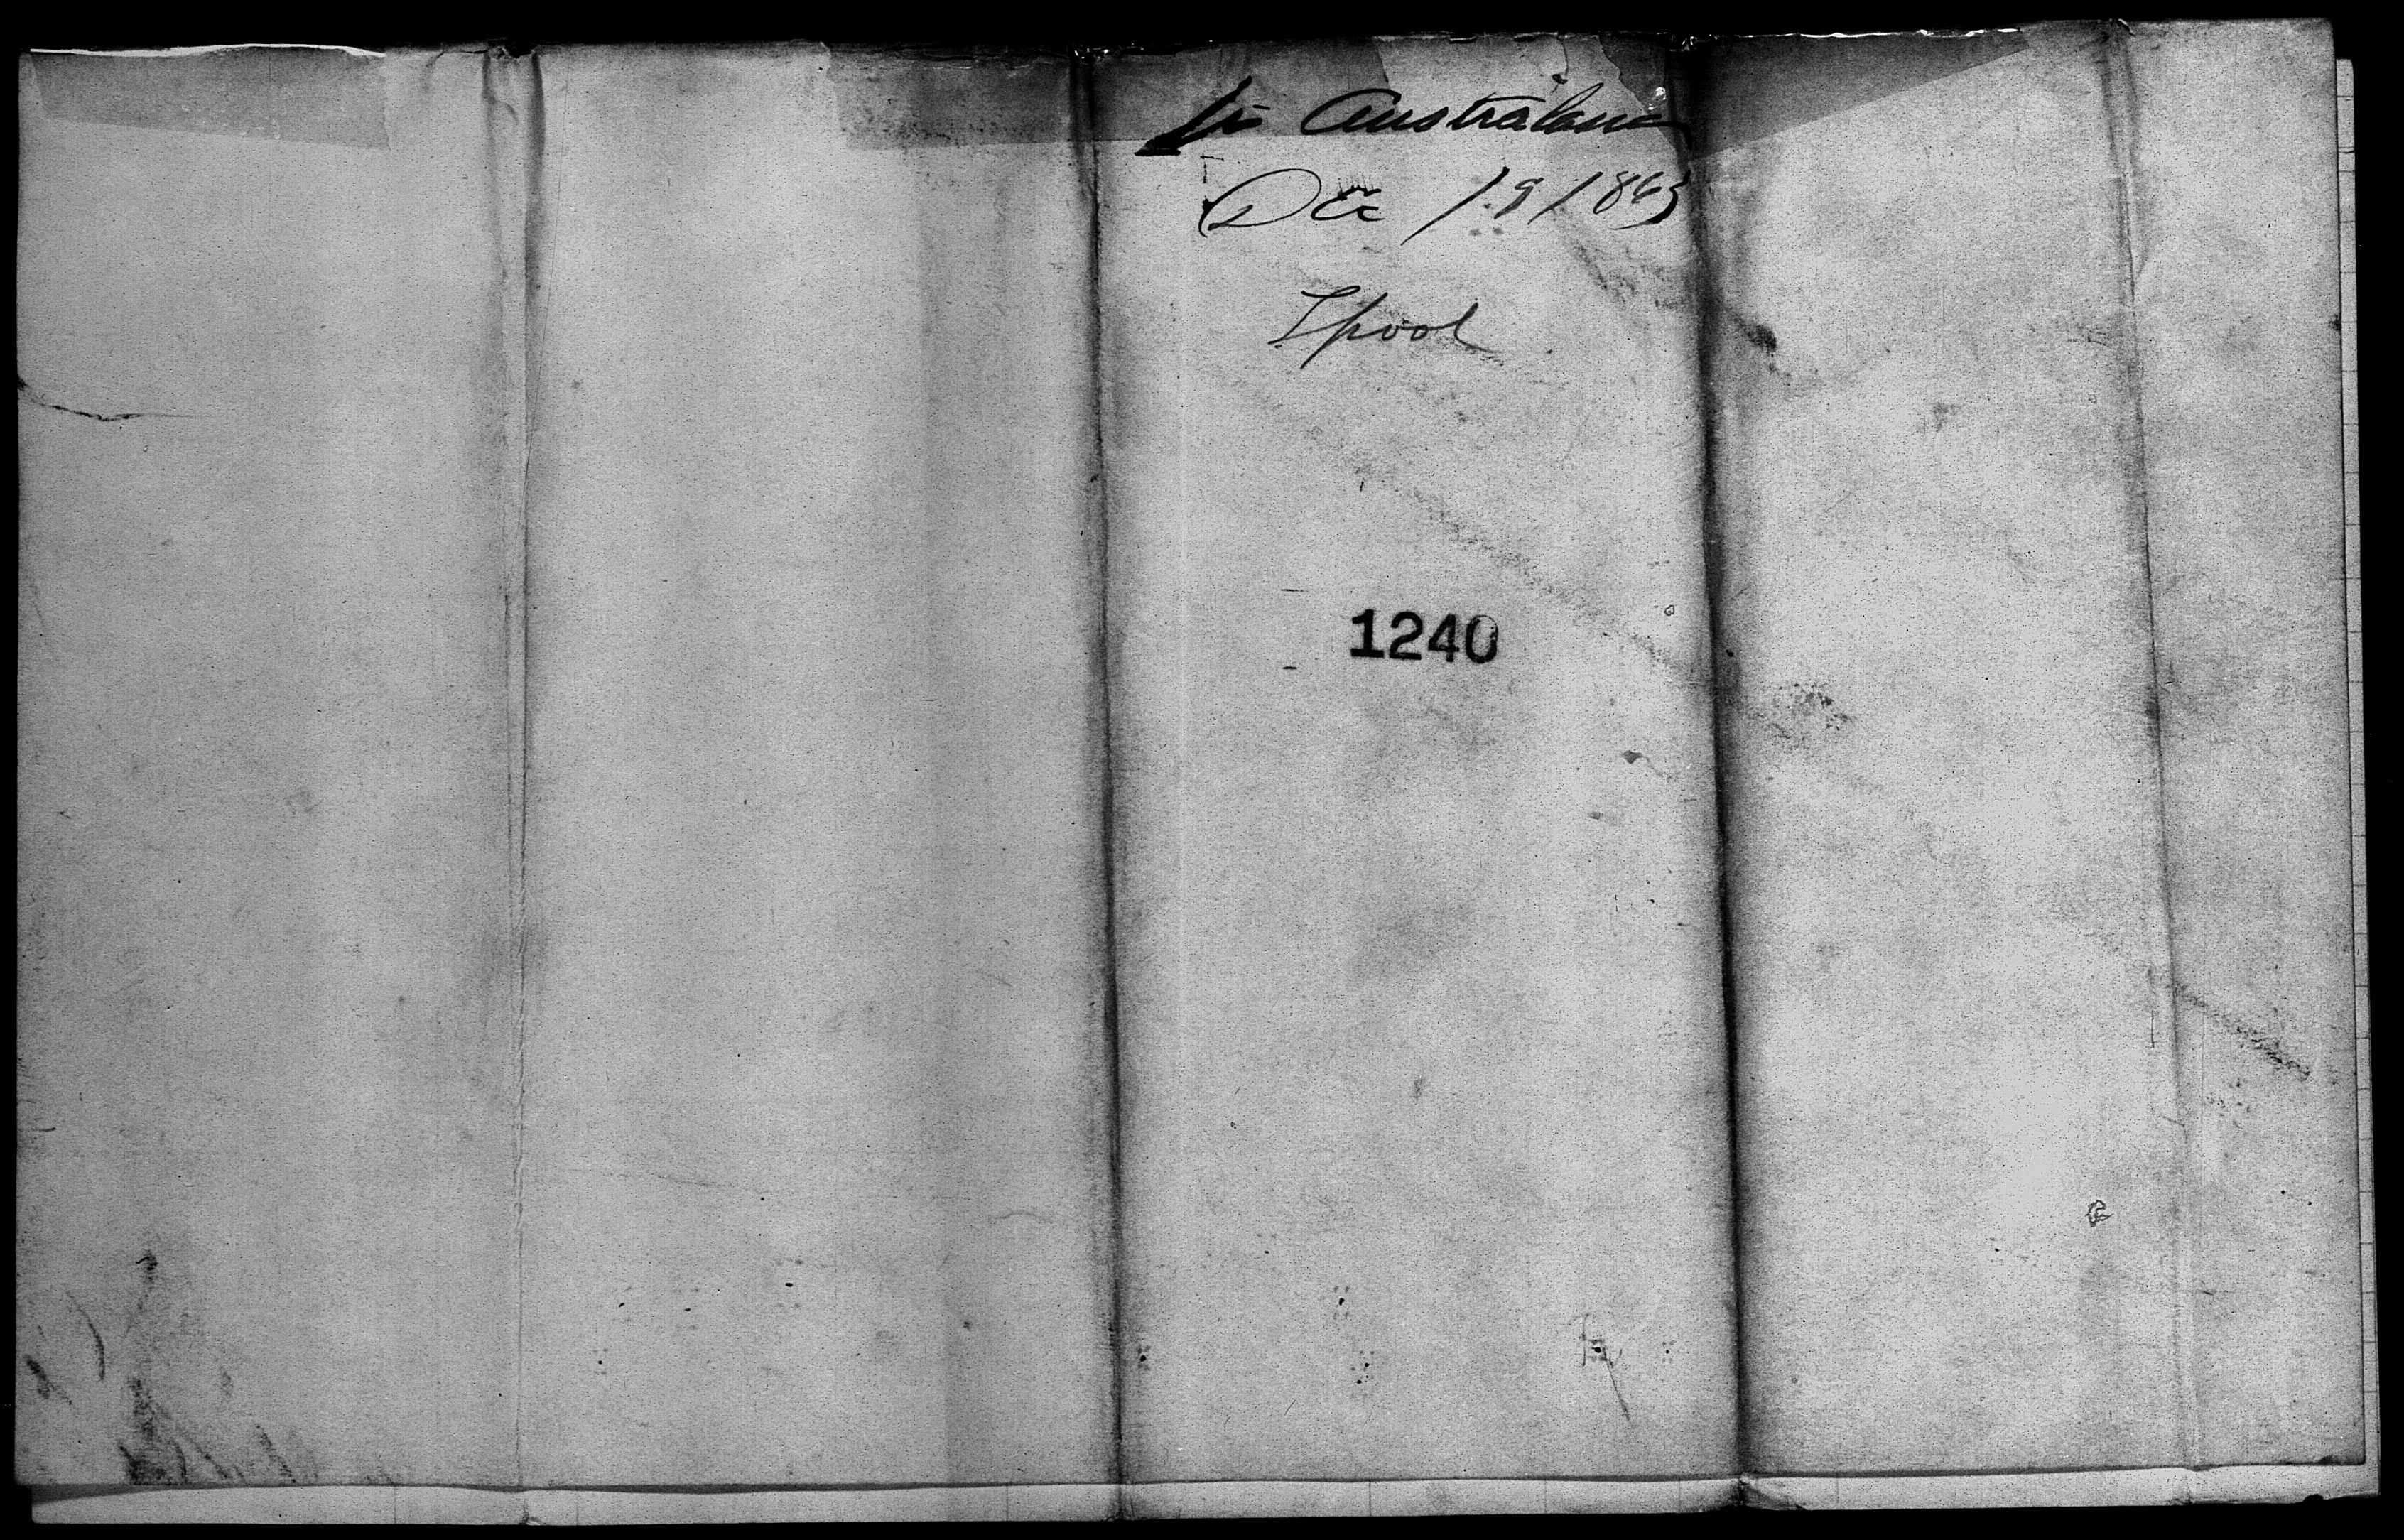 Str Australasian
Dec / 19 / 1863
Lpool
1240